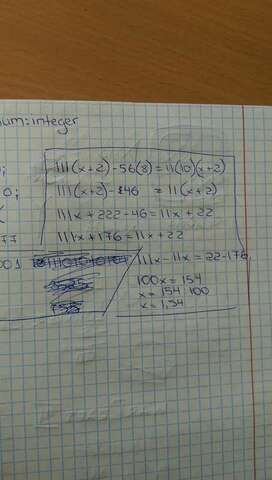 num:integer
111(x+2)-56(8)=11(10)(x+2)
111(x+2)-46 =11(x+2)
111x+222-46=11x+22
111x+176=11x+22
111x-11x=22-176
100x=154
x=154 100
x=1,54